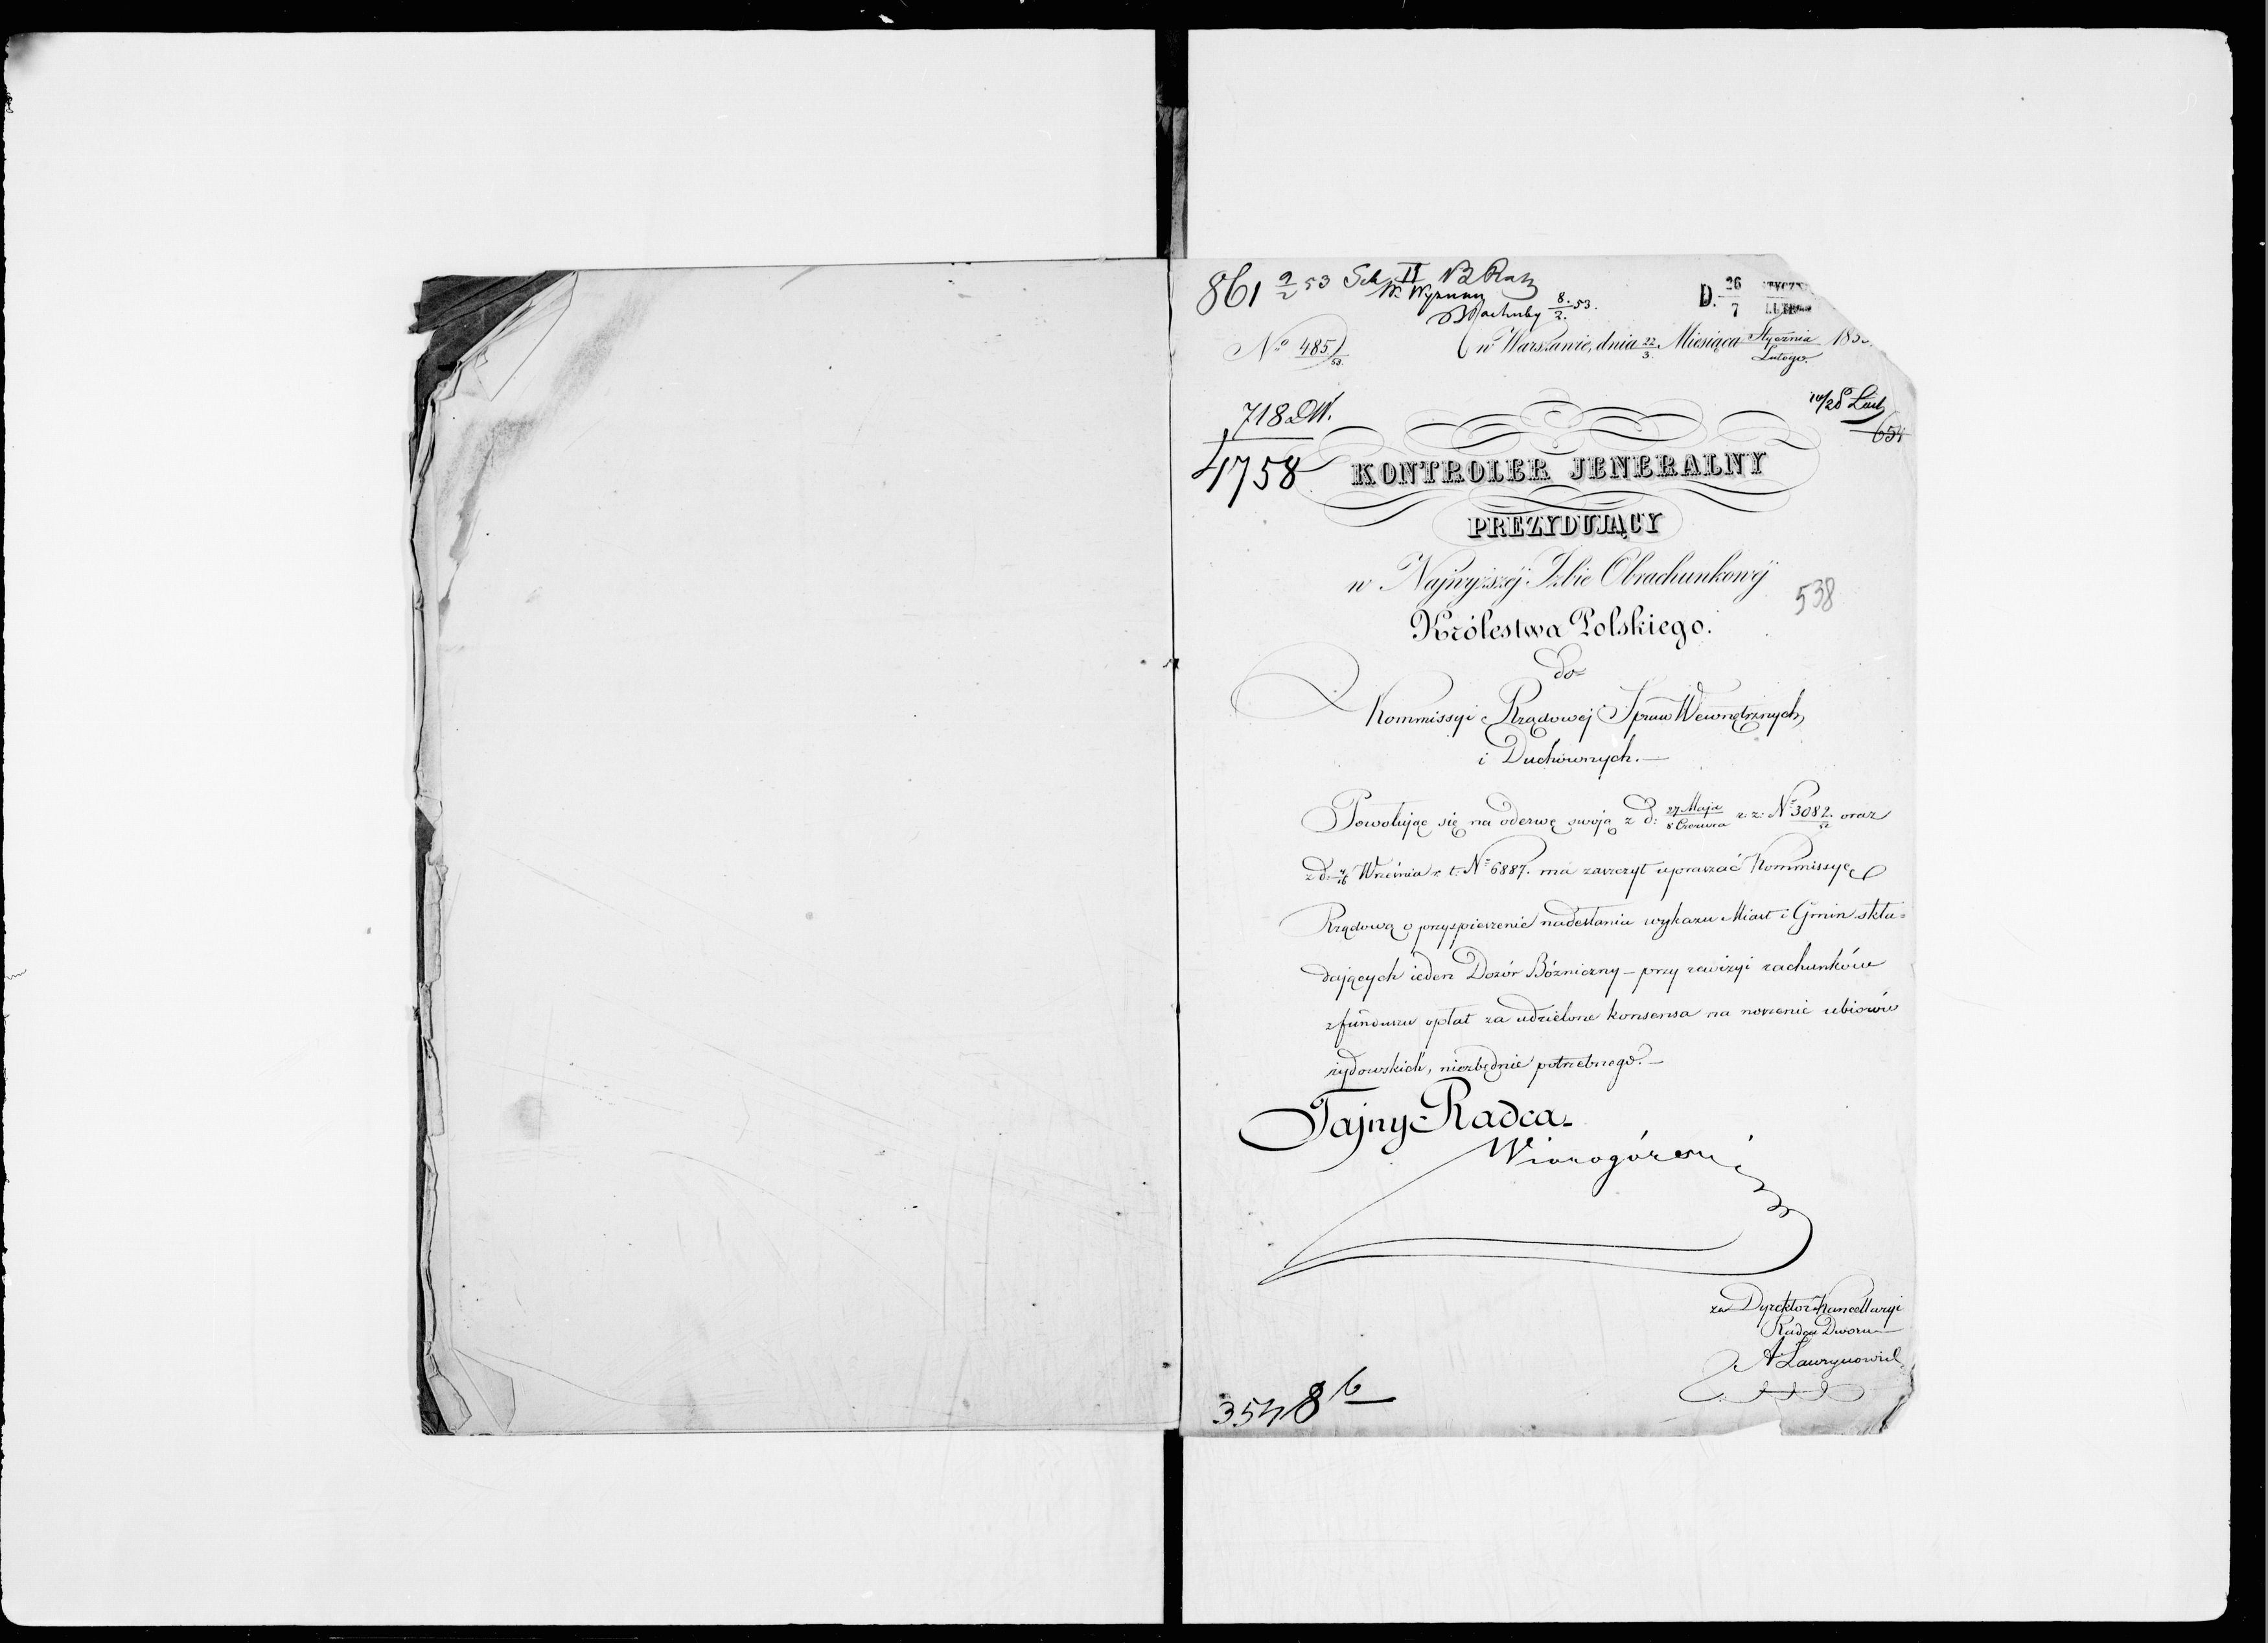 861 9/2 53 Sek II
W. Wyznań
Rachuby 8./2. 53.
D. 26/7 STYCZN LUTEGO
No 485/53.
w Warszawie, dnia 22/3. Miesiąca Stycznia/Lutego. 185
718 DW.
4758
654
KONTROLER JENERALNY
PREZYDUJĄCY
w Najwyższéj Izbie Obrachunkowéj
538
Królestwa Polskiego.
do
Kommissyi Rządowej Spraw Wewnętrznych,
i Duchównych.—
Powołując się na odezwę swoją z d: 27 Maja/8 Czerwca r: z: No 3082./52 oraz
z d: 4/16 Września r. t: No 6887. ma zaszczyt upraszać Kommissyę
Rządową o przyspieszenie nadesłania wykazu Miast i Gmin skła=
dających ieden Dozór Bóżniczny – przy rewizyi rachunków
z funduszu opłat za udzielone konsensa na noszenie ubiorów
żydowskich, niezbędnie potrzebnego.—
Tajny Radca
za Dyrektor Kancellaryi
Radca Dworu
A Lawrynowicz
3548 b